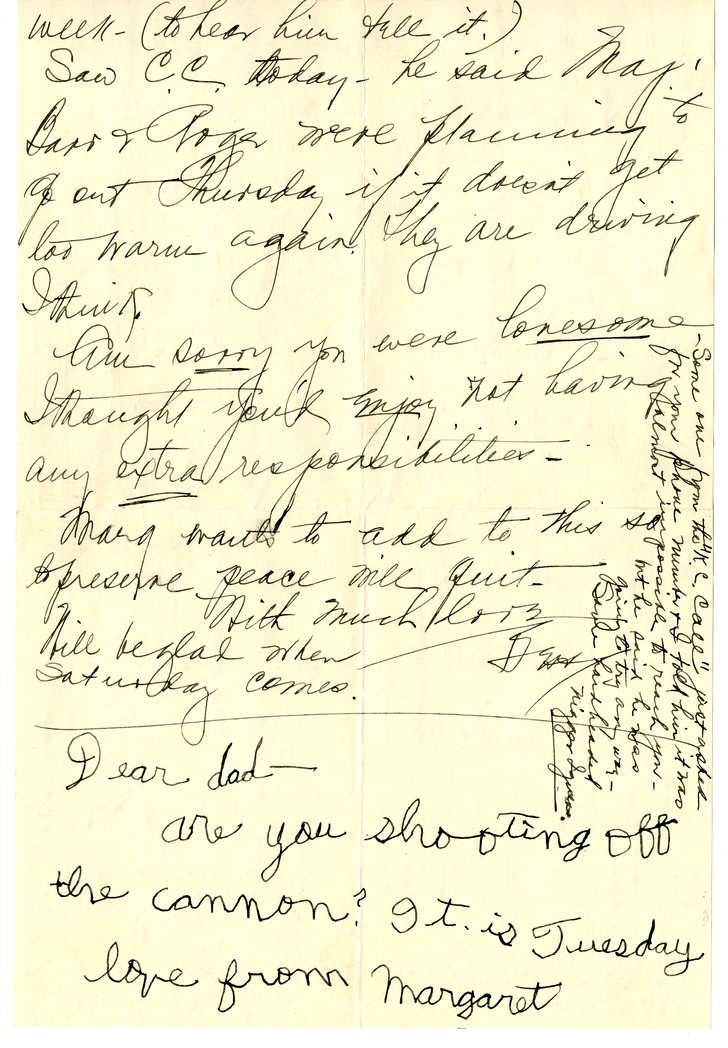 week - (to hear him tell it.)
Saw C.C. today - he said Maj.
Barr & Roger were planning to
go out Thursday if it doesn't get
too warm again. They are driving
I think.
Am sorry you were lonesome
I thought you'd enjoy not having
any extra responsibilities -
Marg wants to add to this so
to preserve peace will quit -
With much love
Will be glad when
Bess
Saturday comes.
- Some one from the "K.C. Call" just asked
for your phone number & I told him it was
almost impossible to reach you -
but he said he was
going to try any way -
hardheaded
nigger I guess.
Dear dad -
are you shooting off
the cannon? It. is Tuesday
love from Margaret